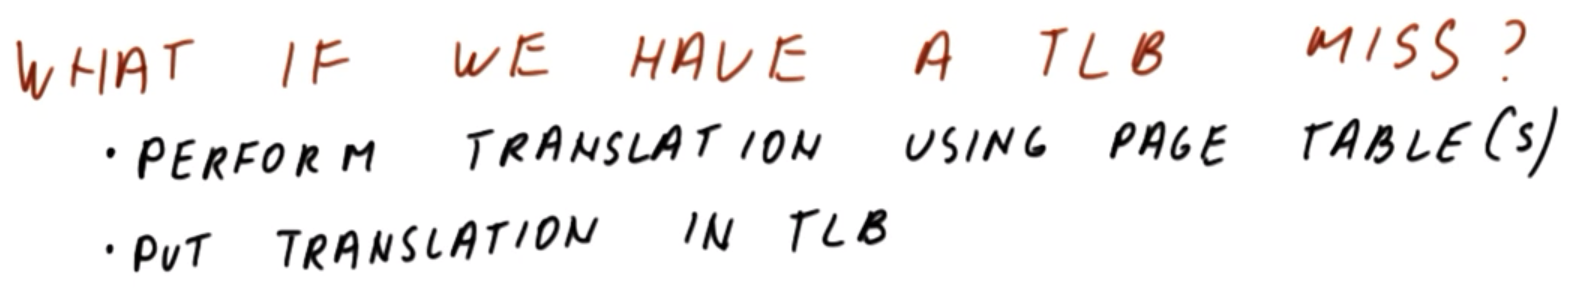 WHAT IF WE HAVE A TLB MISS?
• PERFORM TRANSLATION USING PAGE TABLE(S)
• PUT TRANSLATION IN TLB